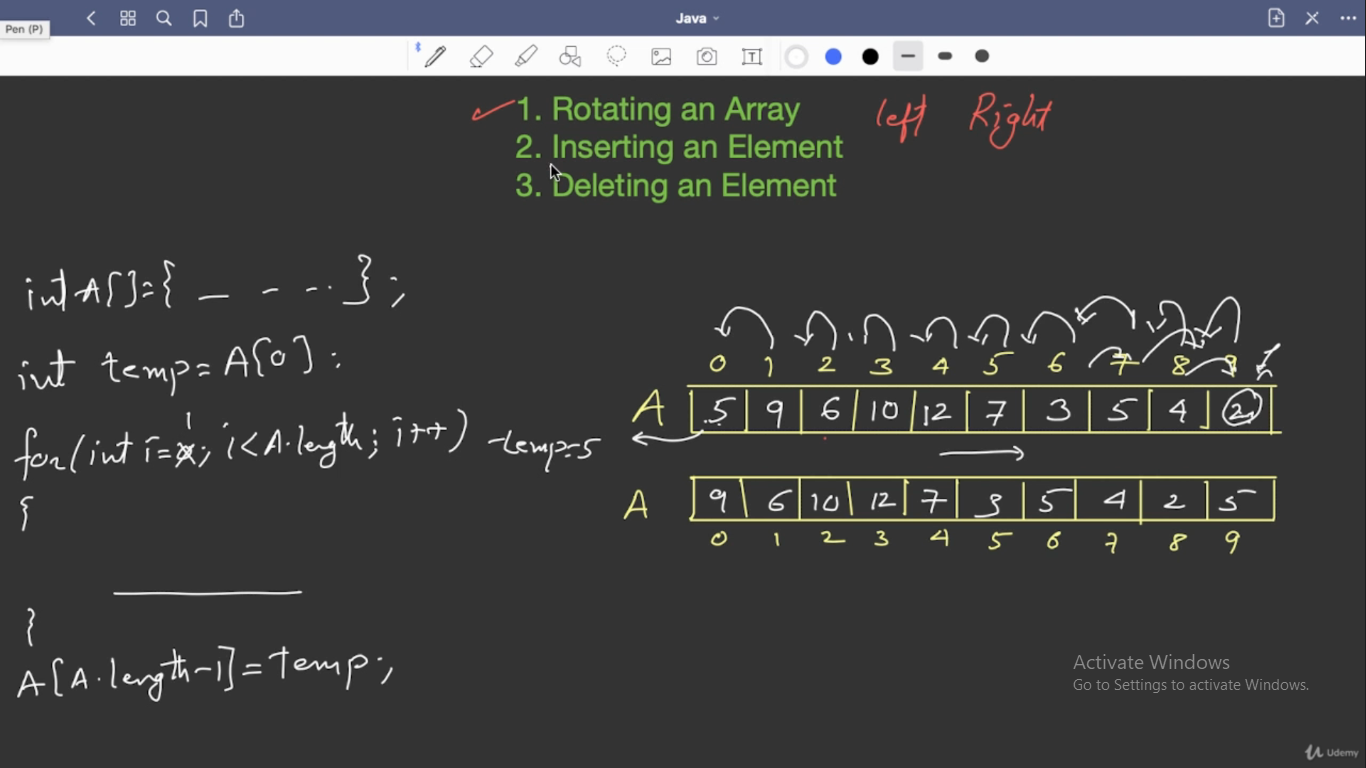 Java
Pen (P)
1. Rotating an Array left Right
2. Inserting an Element
3. Deleting an Element
int A[]={ _ - - .. };
int temp = A[0];
for(int i=1; i<A.length; i++)
{
}
A[A.length-1]=temp;
temp=5
0 1 2 3 4 5 6 7 8 9
A 5 9 6 10 12 7 3 5 4 2
A 9 6 10 12 7 3 5 4 2 5
0 1 2 3 4 5 6 7 8 9
Activate Windows
Go to Settings to activate Windows.
Udemy